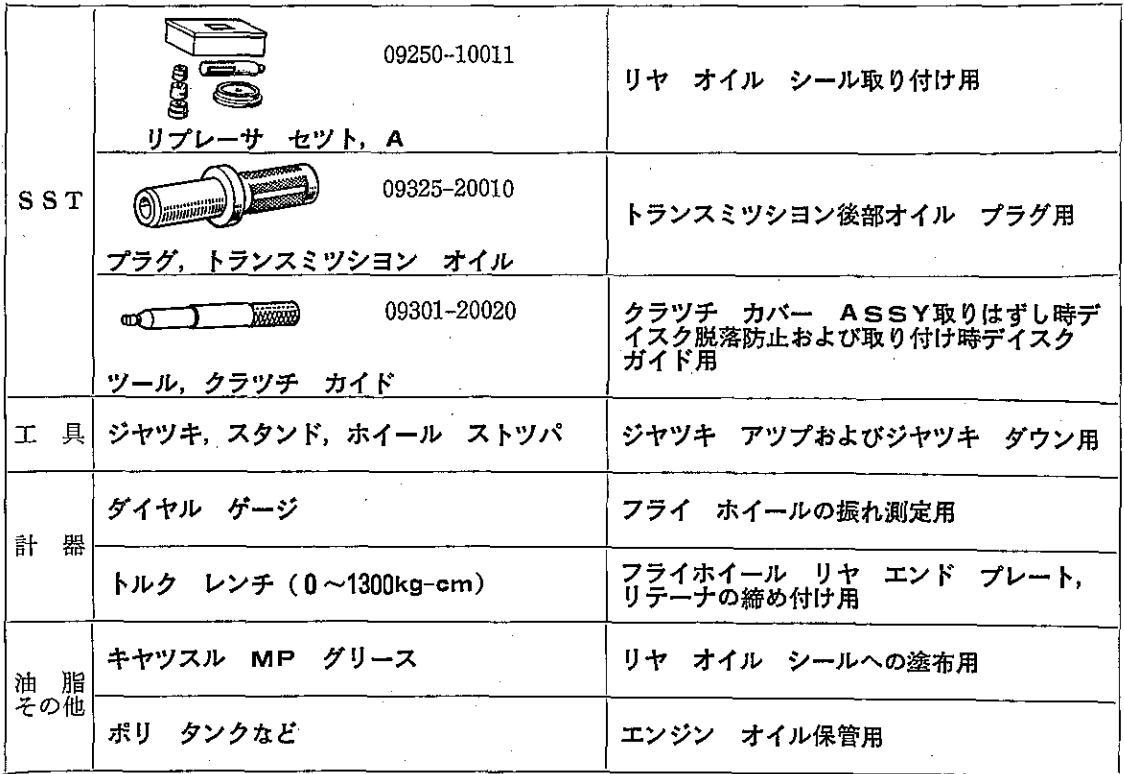 SST
09250-10011
リプレーサ セツト, A
リヤ オイル シール取り付け用
09325-20010
プラグ, トランスミツシヨン オイル
トランスミツシヨン後部オイル プラグ用
09301-20020
ツール, クラツチ カイド
クラツチ カバー ASSY取りはずし時デ
イスク脱落防止および取り付け時デイスク
ガイド用
工 具
ジヤツキ, スタンド, ホイール ストツパ
ジヤツキ アツプおよびジヤツキ ダウン用
計 器
ダイヤル ゲージ
フライ ホイールの振れ測定用
トルク レンチ (0~1300kg-cm)
フライホイール リヤ エンド プレート,
リテーナの締め付け用
油 脂
その他
キヤツスル MP グリース
リヤ オイル シールへの塗布用
ポリ タンクなど
エンジン オイル保管用